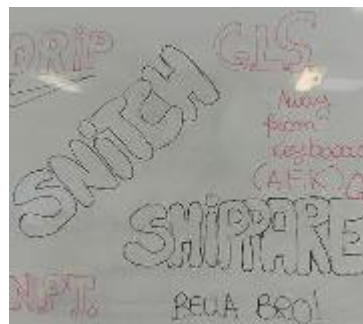 DRIP
GLS
SNITCH
Away
from
keyboard
(AFK)
SHIPPARE
N.P.T.
BELLA BRO!